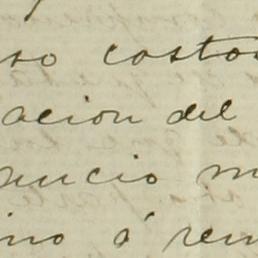 so costos
acion del
uncio m
ino á ren